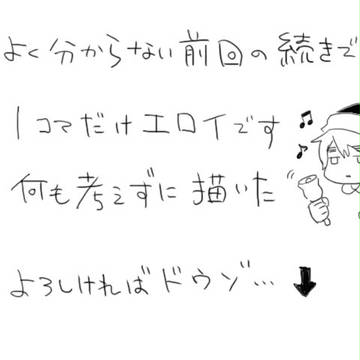 よく分からない前回の続きで
1コマだけエロイです
何も考えずに描いた
よろしければドウゾ…